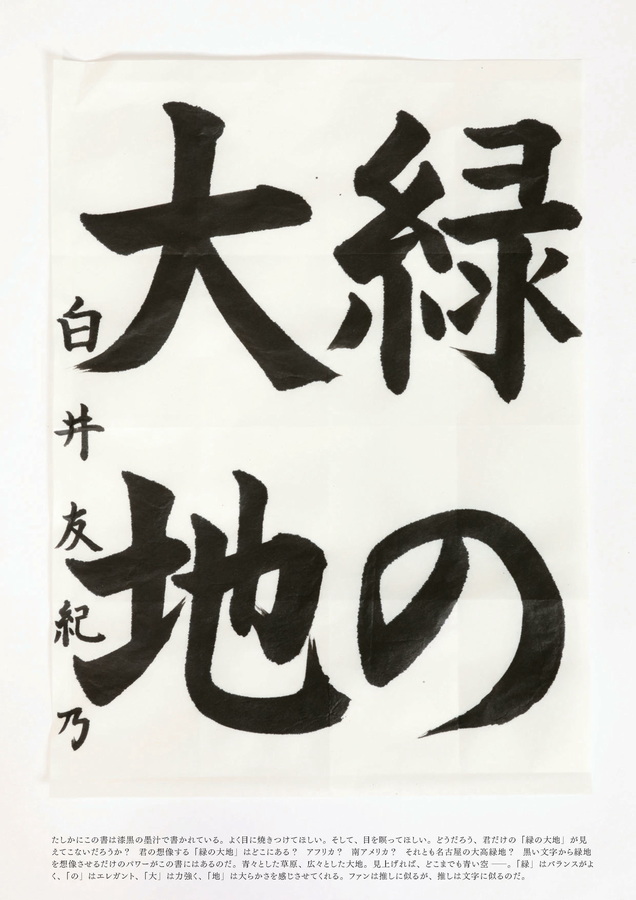 緑の
大地
白井友紀乃
たしかにこの書は漆黒の墨汁で書かれている。よく目に焼きつけてほしい。そして、目を瞑ってほしい。どうだろう、君だけの「緑の大地」が見
えてこないだろうか？　君の想像する「緑の大地」はどこにある？　アフリカ？　南アメリカ？　それとも名古屋の大高緑地？　黒い文字から緑地
を想像させるだけのパワーがこの書にはあるのだ。青々とした草原、広々とした大地。見上げれば、どこまでも青い空——。「緑」はバランスがよ
く、「の」はエレガント、「大」は力強く、「地」は大らかさを感じさせてくれる。ファンは推しに似るが、推しは文字に似るのだ。